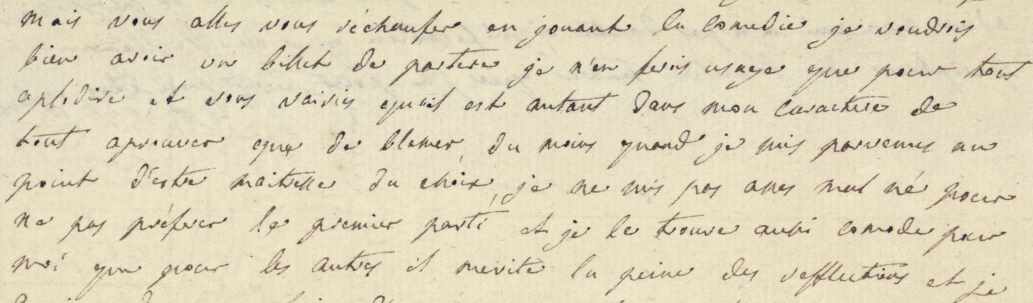 mais vous alles vous réchaufer en jouant la comedie je voudrois
bien avoir un billet de parterre je n'en ferois usage que pour tout
aplodire et vous vairies qu'il est autant dans mon caractere de
tout aprouver que de blamer, du moins quand je suis parvenue au
point d'estre maitresse du choix, je ne suis pas asses mal né pour
ne pas préférer le premier parti et je le trouve aussi comode pour
moi que pour les autres il merite la peine des reflections et je